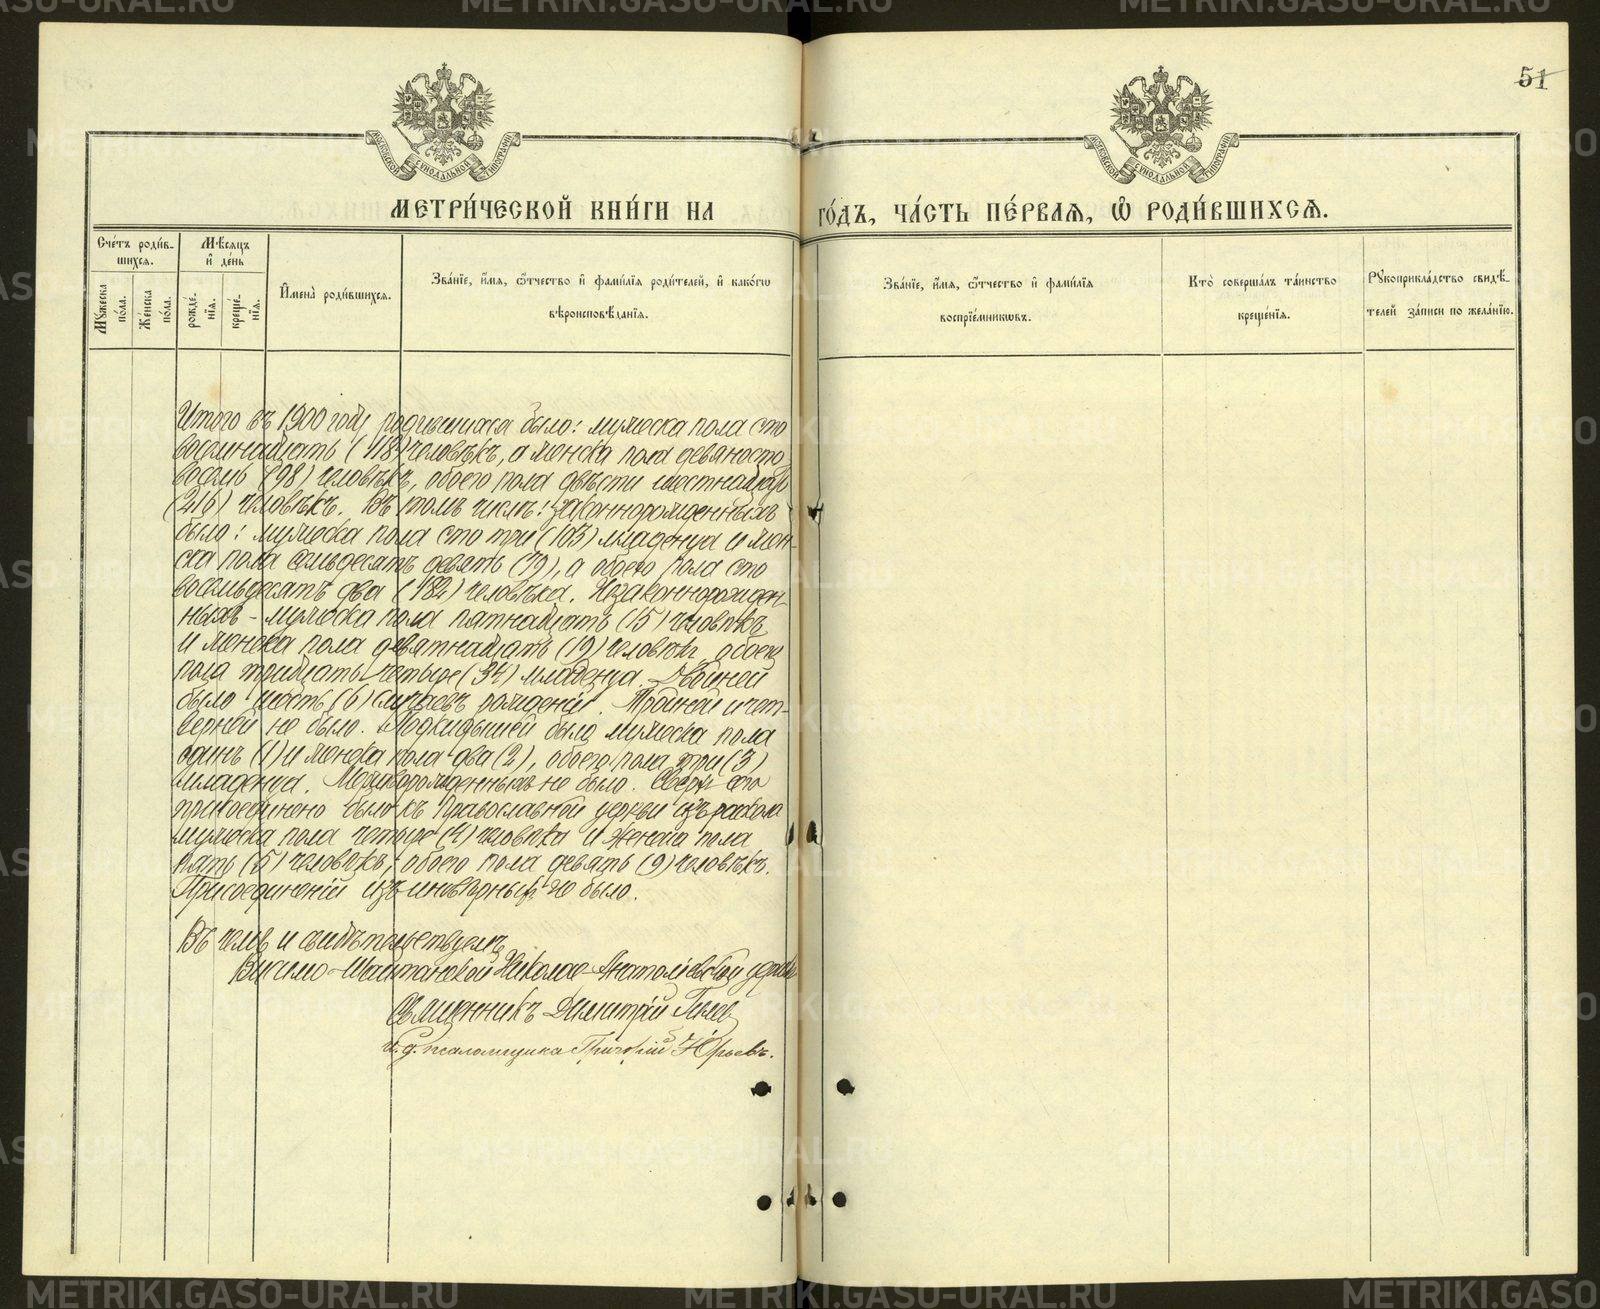 51
МОСКОВСКОЙ СѴНОДАЛЬНОЙ ТИПОГРАФІИ
МОСКОВСКОЙ СѴНОДАЛЬНОЙ ТИПОГРАФІИ
МЕТРИ́ЧЕСКОЙ КНИ́ГИ НА ГО́ДЪ, ЧА́СТЬ ПЕ́РВАЯ, Ѡ҆ РОДИ́ВШИХСЯ.
Сче́тъ роди́в-
шихся.
Мꙋ́жеска по́ла.
Же́нска по́ла.
Мѣ́сяцъ
и҆ де́нь
рожде́-
нїя.
креще́-
нїя.
И҆мена̀ роди́вшихся.
Зва́нїе, и҆́мя, ѻ҆́тчество и҆ фами́лїя роди́телей, и҆ како́гѡ
вѣроисповѣ́данїя.
Зва́нїе, и҆́мя, ѻ҆́тчество и҆ фами́лїя
воспрїе́мниковъ.
Кто̀ соверша́лъ та́инство
креще́нїя.
Рꙋкоприкла́дство свидѣ́-
телей за́писи по жела́нїю.
Итого въ 1900 году родившихся было: мужеска пола сто
восемнадцать (118) человѣкъ, а женска пола девяносто
восемь (98) человѣкъ, обоего пола двѣсти шестнадцать
(216) человѣкъ. Въ томъ числѣ: законнорожденныхъ
было: мужеска пола сто три (103) младенца и жен-
ска пола семьдесятъ девять (79), а обоего пола сто
восемьдесятъ два (182) человѣка. Незаконнорожден-
ныхъ - мужеска пола пятнадцать (15) человѣкъ
и женска пола девятнадцать (19) человѣкъ обоего
пола тридцать четыре (34) младенца. Двойней
было шесть (6) случаевъ рожденій. Тройней и чет-
верней не было. Подкидышей было мужеска пола
одинъ (1) и женска пола два (2), обоего пола три (3)
младенца. Мертворожденныхъ не было. Сверхъ сего
присоединено было къ Православной церкви изъ раскола
мужеска пола четыре (4) человѣка и женска пола
пять (5) человѣкъ, обоего пола девять (9) человѣкъ.
Присоединеній изъ иновѣрныхъ не было.
Въ чемъ и свидѣтельствуемъ
Висимо-Шайтанской Николае-Анатоліевской церкви
Священникъ Димитрій Гилев
и. д. псаломщика Григорій Юрьевъ.